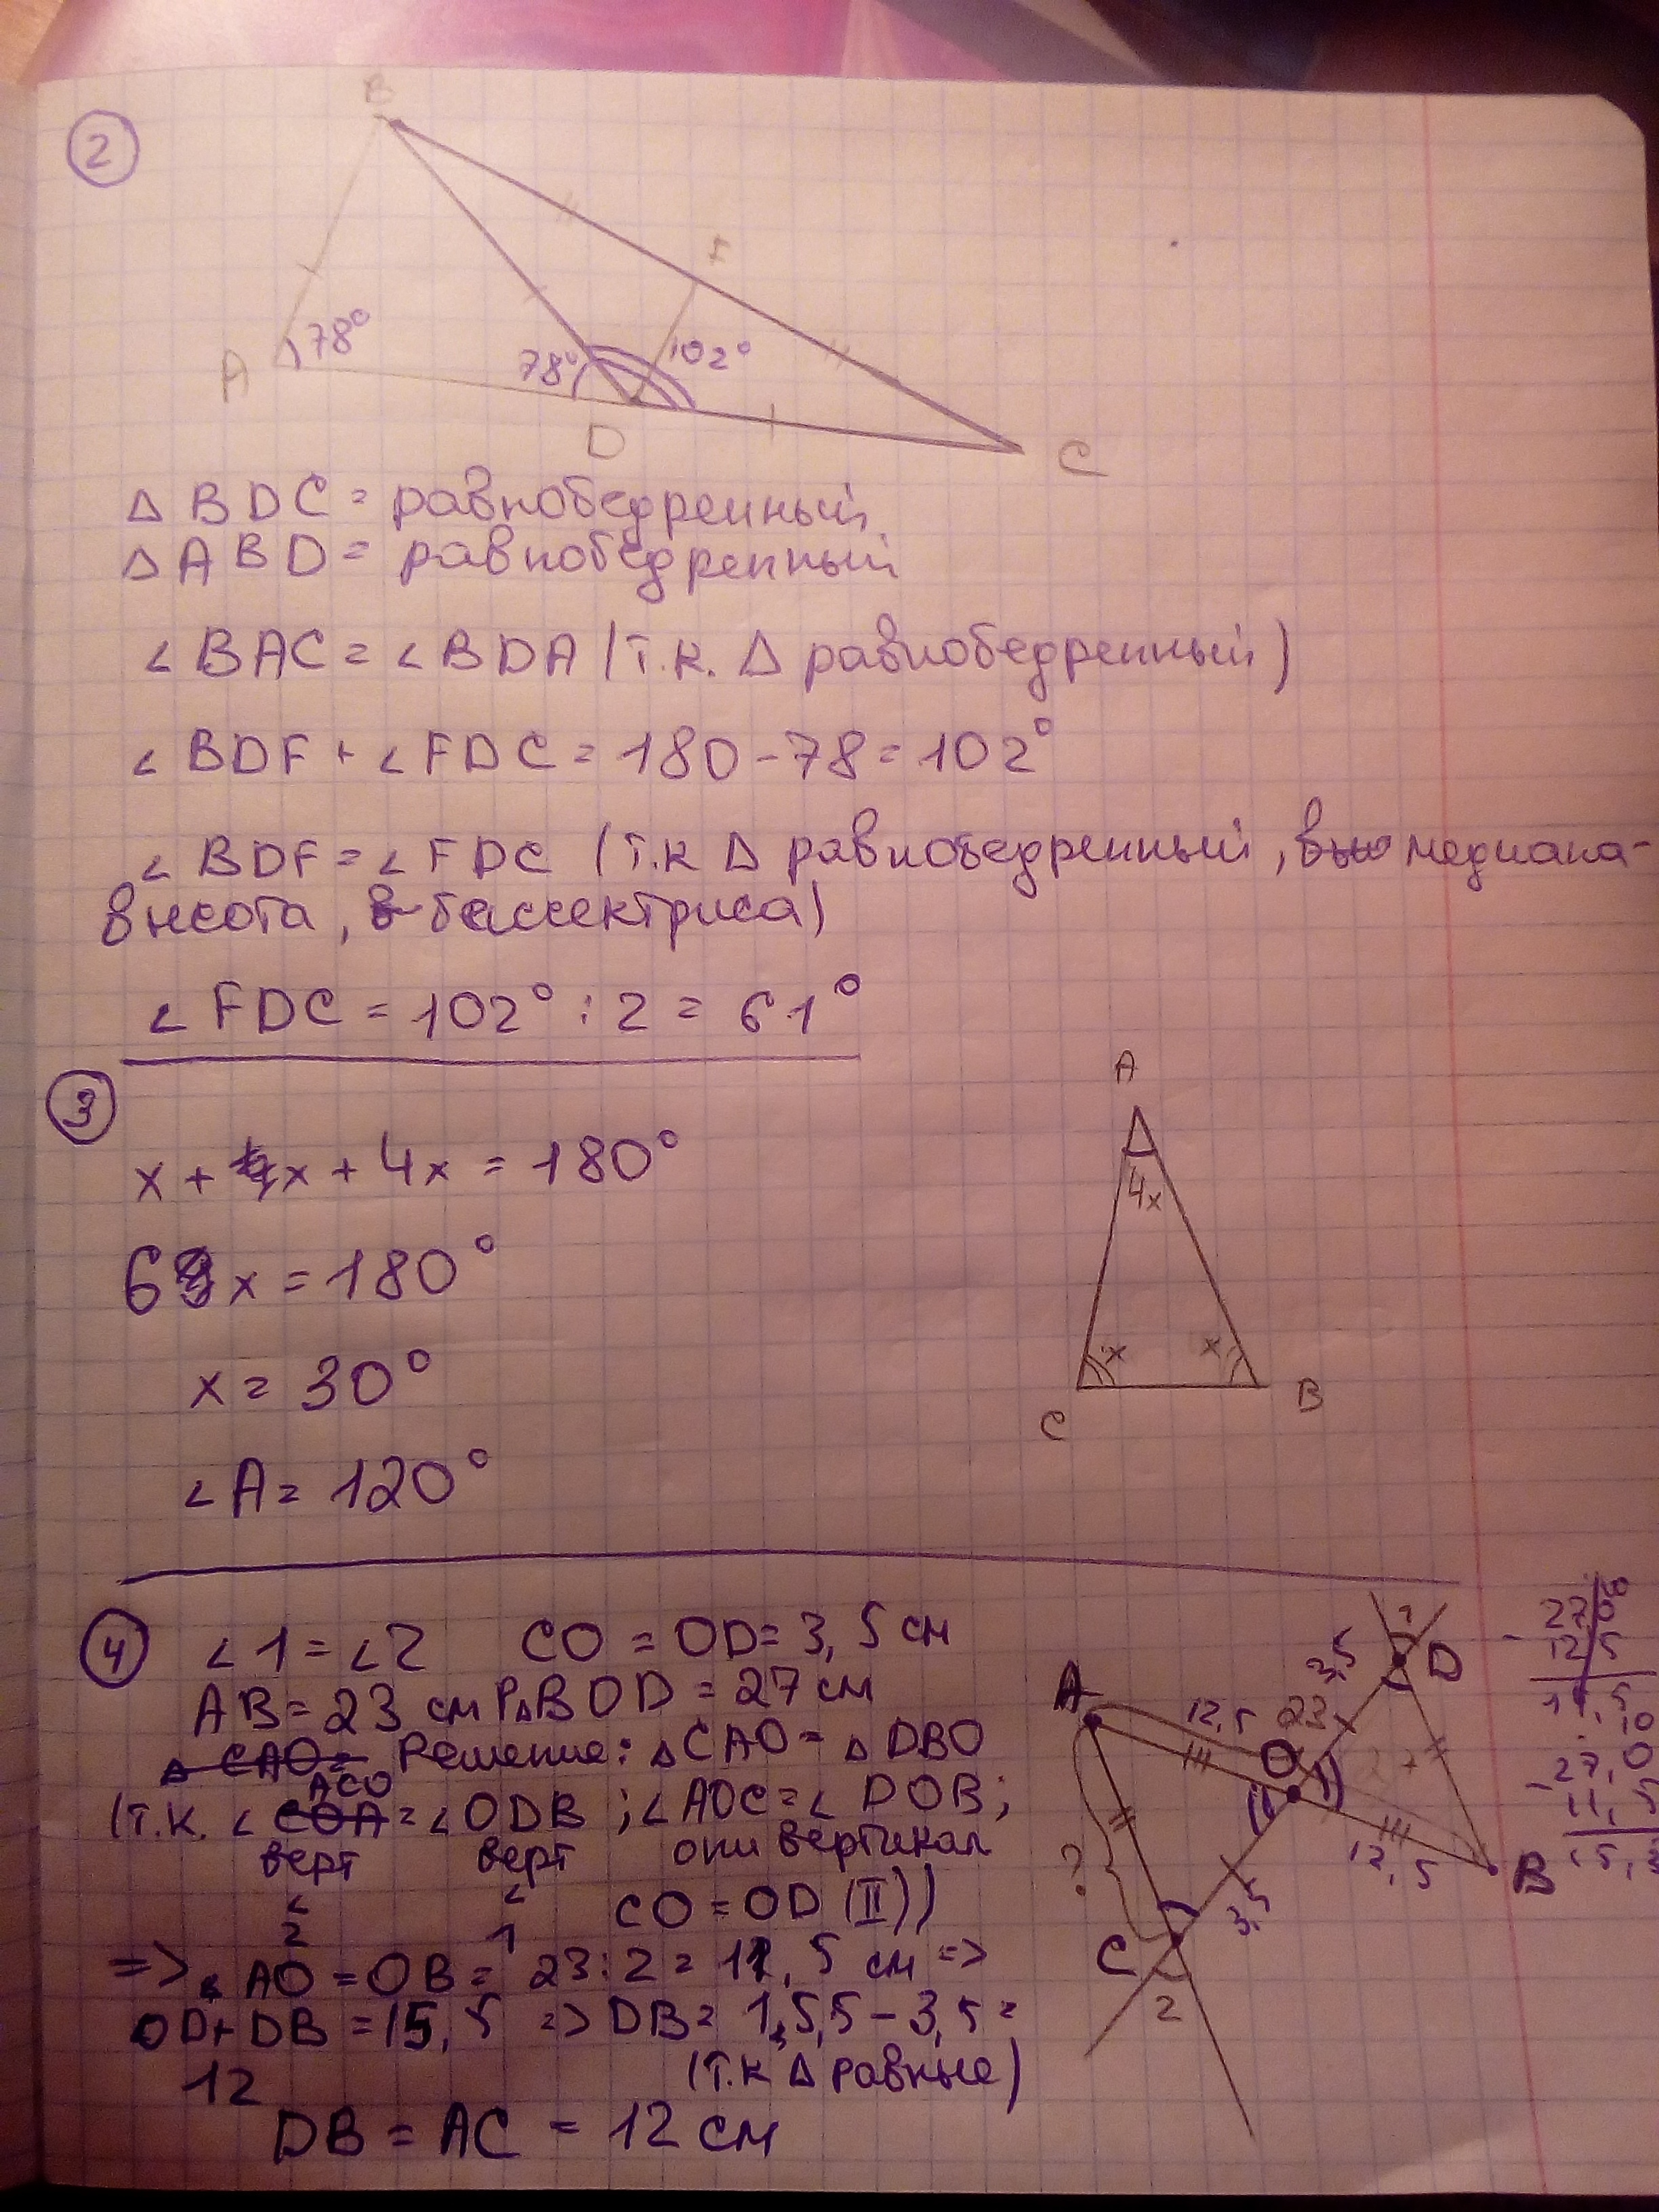 2
B
F
A
78°
78°
102°
D
C
Δ BDC = равнобедренный
Δ ABD = равнобедренный
∠ BAC = ∠ BDA (т.к. Δ равнобедренный)
∠ BDF + ∠ FDC = 180 - 78 = 102°
∠ BDF = ∠ FDC (т.к Δ равнобедренный, медиана-
высота, биссектриса)
∠ FDC = 102° : 2 = 61°
3
x + x + 4x = 180°
6x = 180°
x = 30°
∠ A = 120°
A
4x
x
x
C
B
4
∠ 1 = ∠ 2 CO = OD = 3,5 см
AB = 23 см PΔBOD = 27 см
Δ CAO = Решение: Δ CAO = Δ DBO
ACO
(т.к. ∠ COA = ∠ ODB ; ∠ AOC = ∠ DOB;
верт верт они вертикал
∠ 2 ∠ 1 CO = OD (II))
=> AO = OB = 23 : 2 = 11,5 см =>
OD + DB = 15,5 => DB = 15,5 - 3,5 =
12 (т.к Δ равные)
DB = AC = 12 см
1
D
3,5
A
12,5
23
O
27
12,5
B
?
3,5
C
2
27,0
- 12,5
27,0
- 11,5